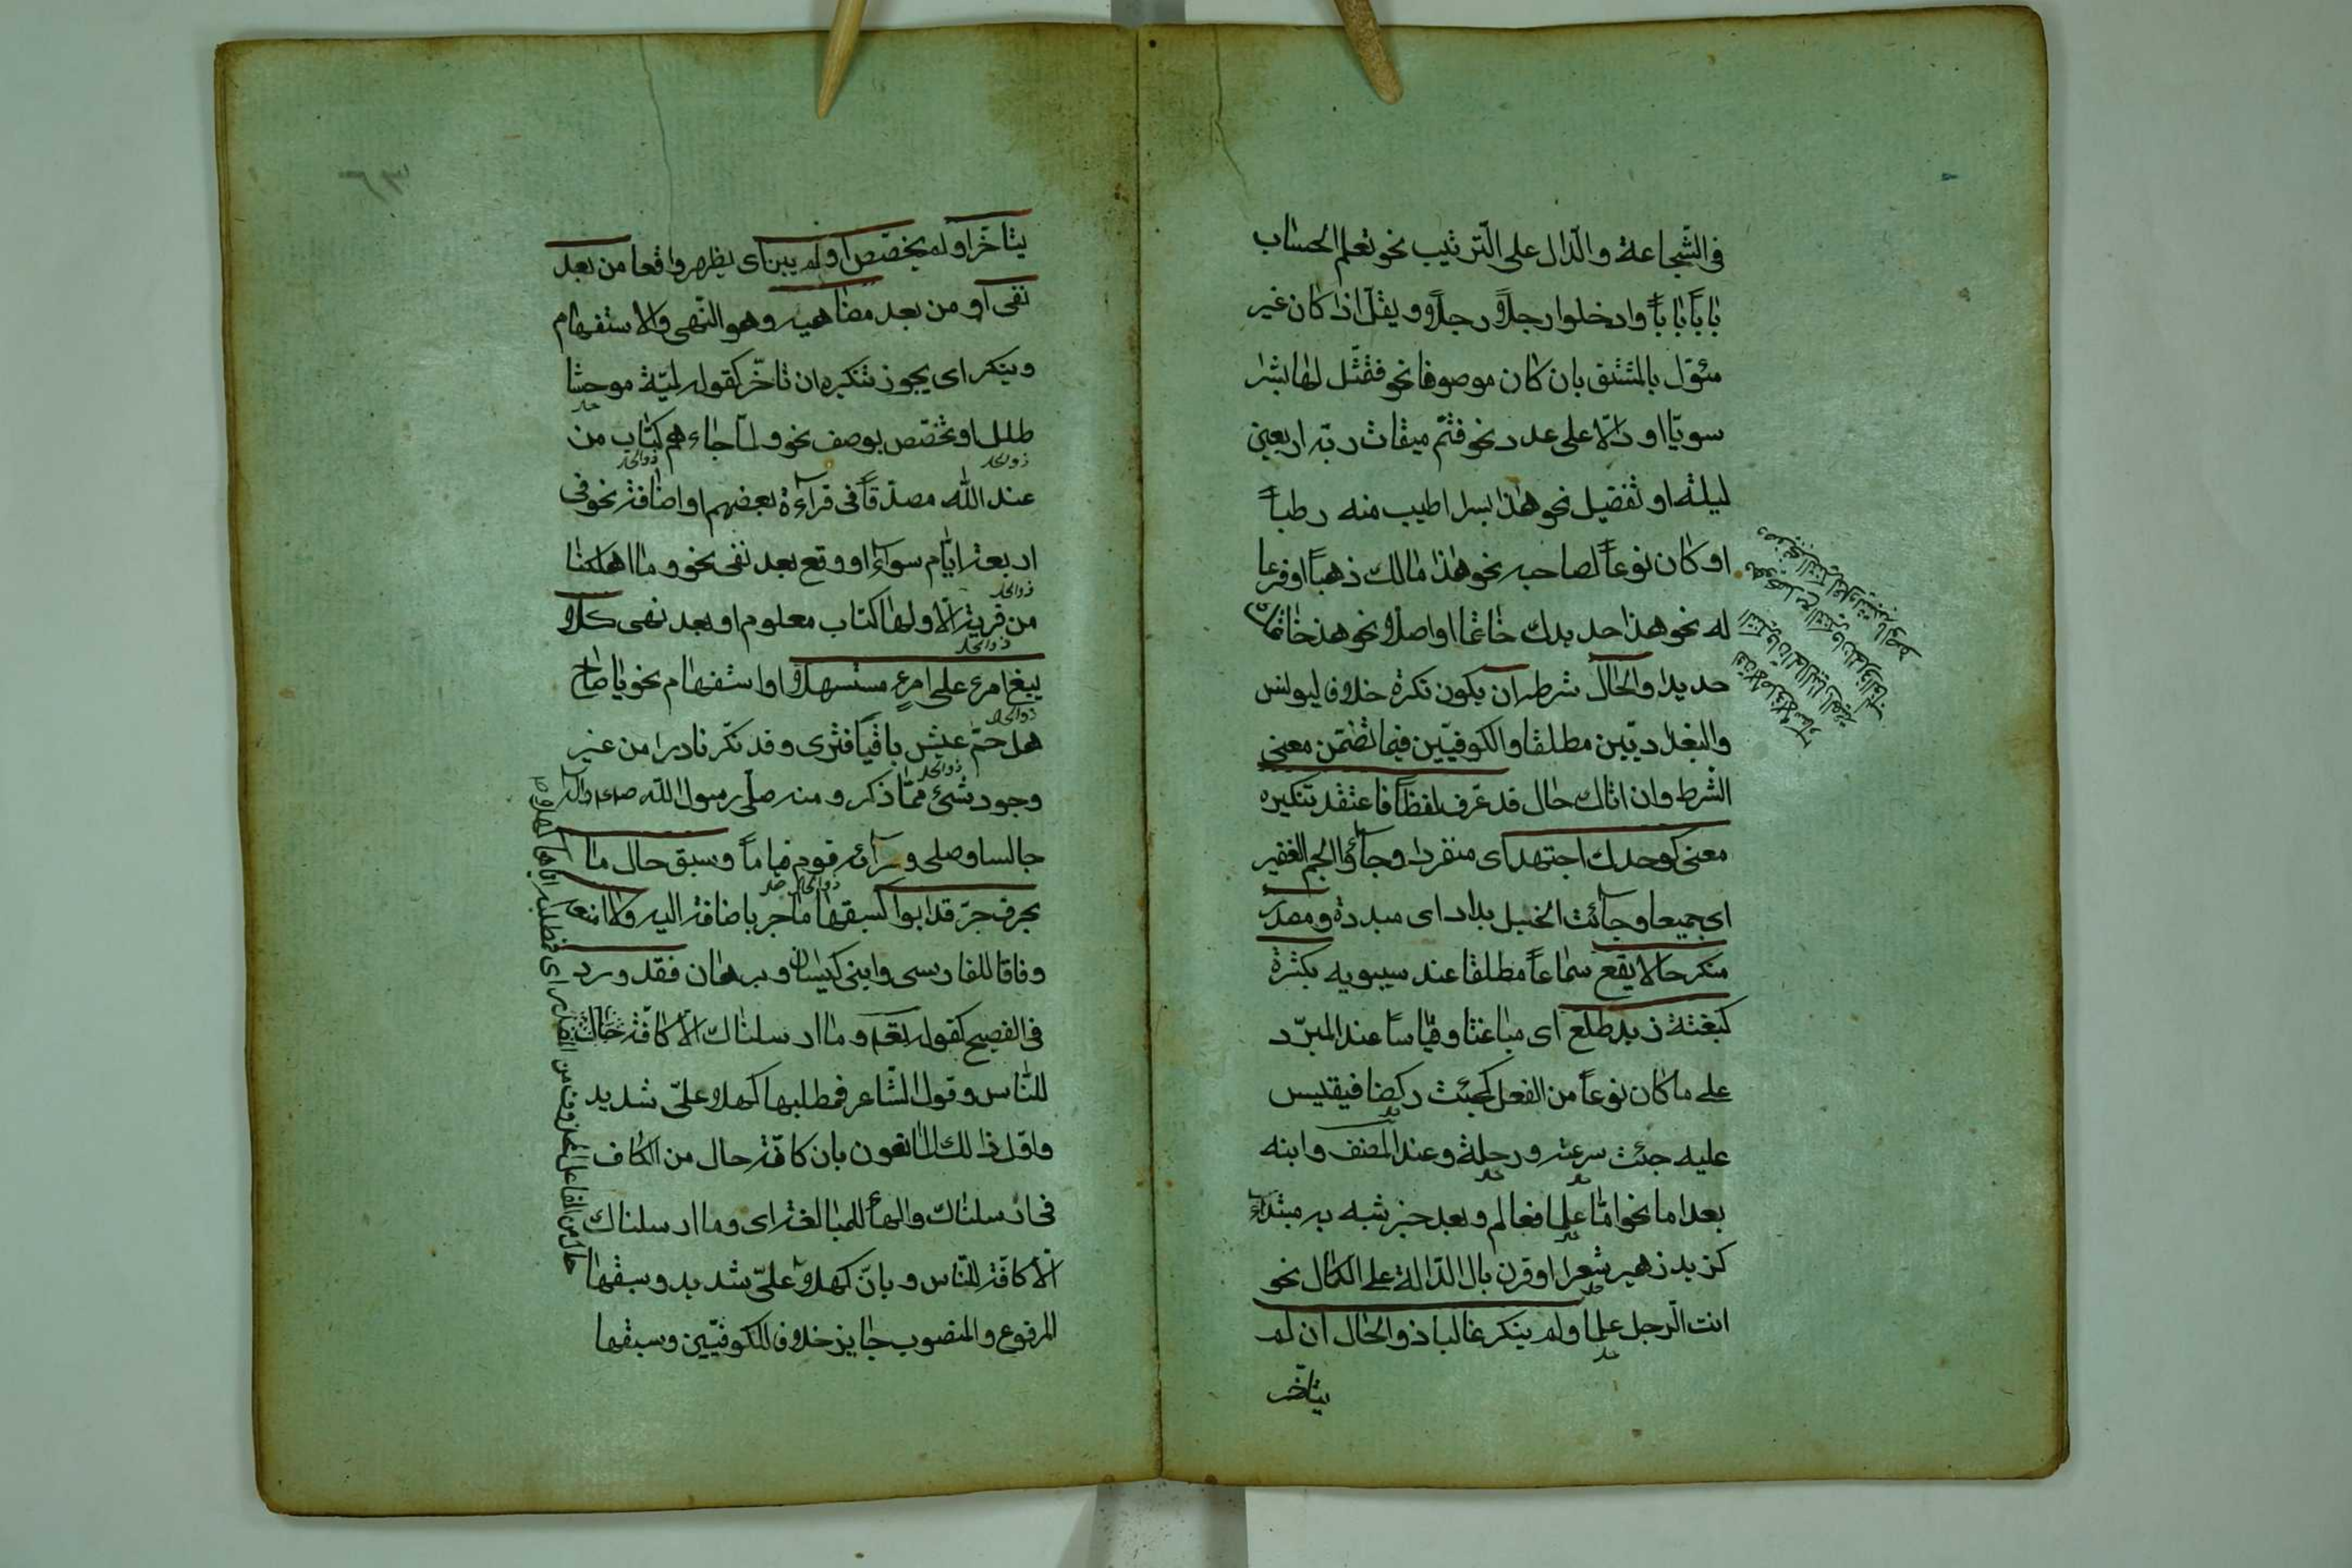 فى الشّجاعة والدّال على التّرتيب نحو تعلم الحساب
بابًا بابًا وادخلوا رجلًا رجلًا ويقلّ اذا كان غير
مئوّل بالمشتق بان كان موصوفا نحو فتمثّل لها بشرا
سويّا او دالّا على عدد نحو فتمّ ميقات ربّه اربعين
ليلة او تفضيل نحو هذا بسرا اطيب منه رطبًا
او كان نوعًا لصاحبه نحو هذا مالك ذهبًا او فرعا
له نحو هذا حديدك خاتما او اصلا نحو هذا خاتمك
حديدا والحال شرطه ان يكون نكرة خلافا ليونس
والبغداديّين مطلقا والكوفيّين فيما تضمّن معنى
الشرط وان اتاك حال قد عرف لفظًا فاعتقد تنكيره
معنى كوحدك اجتهد اى منفردا وجاؤا الجم الغفير
اى جميعا وجائت الخيل بداد اى مبددة ومصدر
منكر حالا يقع سماعًا مطلقا عند سيبويه بكثرة
كبغتة زيد طلع اى مباغتا وقياسا عند المبرّد
على ما كان نوعًا من الفعل كجئت ركضا فيقيس
عليه جئت سرعة ورجلة وعند المصنف وابنه
بعد اما نحو امّا علما فعالم وبعد خبر شبه به مبتداء
كزيد زهير شعرا او قرن بال الدّالة على الكمال نحو
انت الرّجل علما ولم ينكر غالبا ذو الحال ان لم
يتاخّر
٦٣
يتاخّر او لم يخصّص او لم يبن اى يظهر واقعا من بعد
نفى او من بعد مضاهيه وهو النّهى والاستفهام
وينكر اى يجوز تنكيره ان تاخّر كقوله لميّة موحشا
طلل او تخصّص بوصف نحو ولمّا جاءهم كتاب من
عند الله مصدّقًا فى قراءة بعضهم او اضافة نحو فى
اربعة ايّام سواء او وقع بعد نفى نحو وما اهلكنا
من قرية الّا ولها كتاب معلوم او بعد نهى كلا
يبغ امرء على امرءٍ مستسهلا او استفهام نحو يا صاح
هل حمّ عيش باقيًا فترى وقد نكّر نادرا من غير
وجود شئ ممّا ذكر ومنه صلّى رسول الله
جالسا وصلى ورائه قوم قيامًا وسبق حال ما
بحرف جرّ قد ابوا كسبقها ما جر باضافة اليه ولا امنعه
وفاقا للفارسى وابنى كيسان وبرهان فقد ورد
فى الفصيح كقوله تعم وما ارسلناك الّا كافّة
للنّاس وقول الشّاعر فمطلبها كهلا علىّ شديد
واوّل ذلك المانعون بان كافّة حال من الكاف
فى ارسلناك والهاء للمبالغة اى وما ارسلناك
الّا كافّة للنّاس وبانّ كهلا علىّ شديد وسبقها
المرفوع والمنصوب جايز خلافا للكوفيّين وسبقها